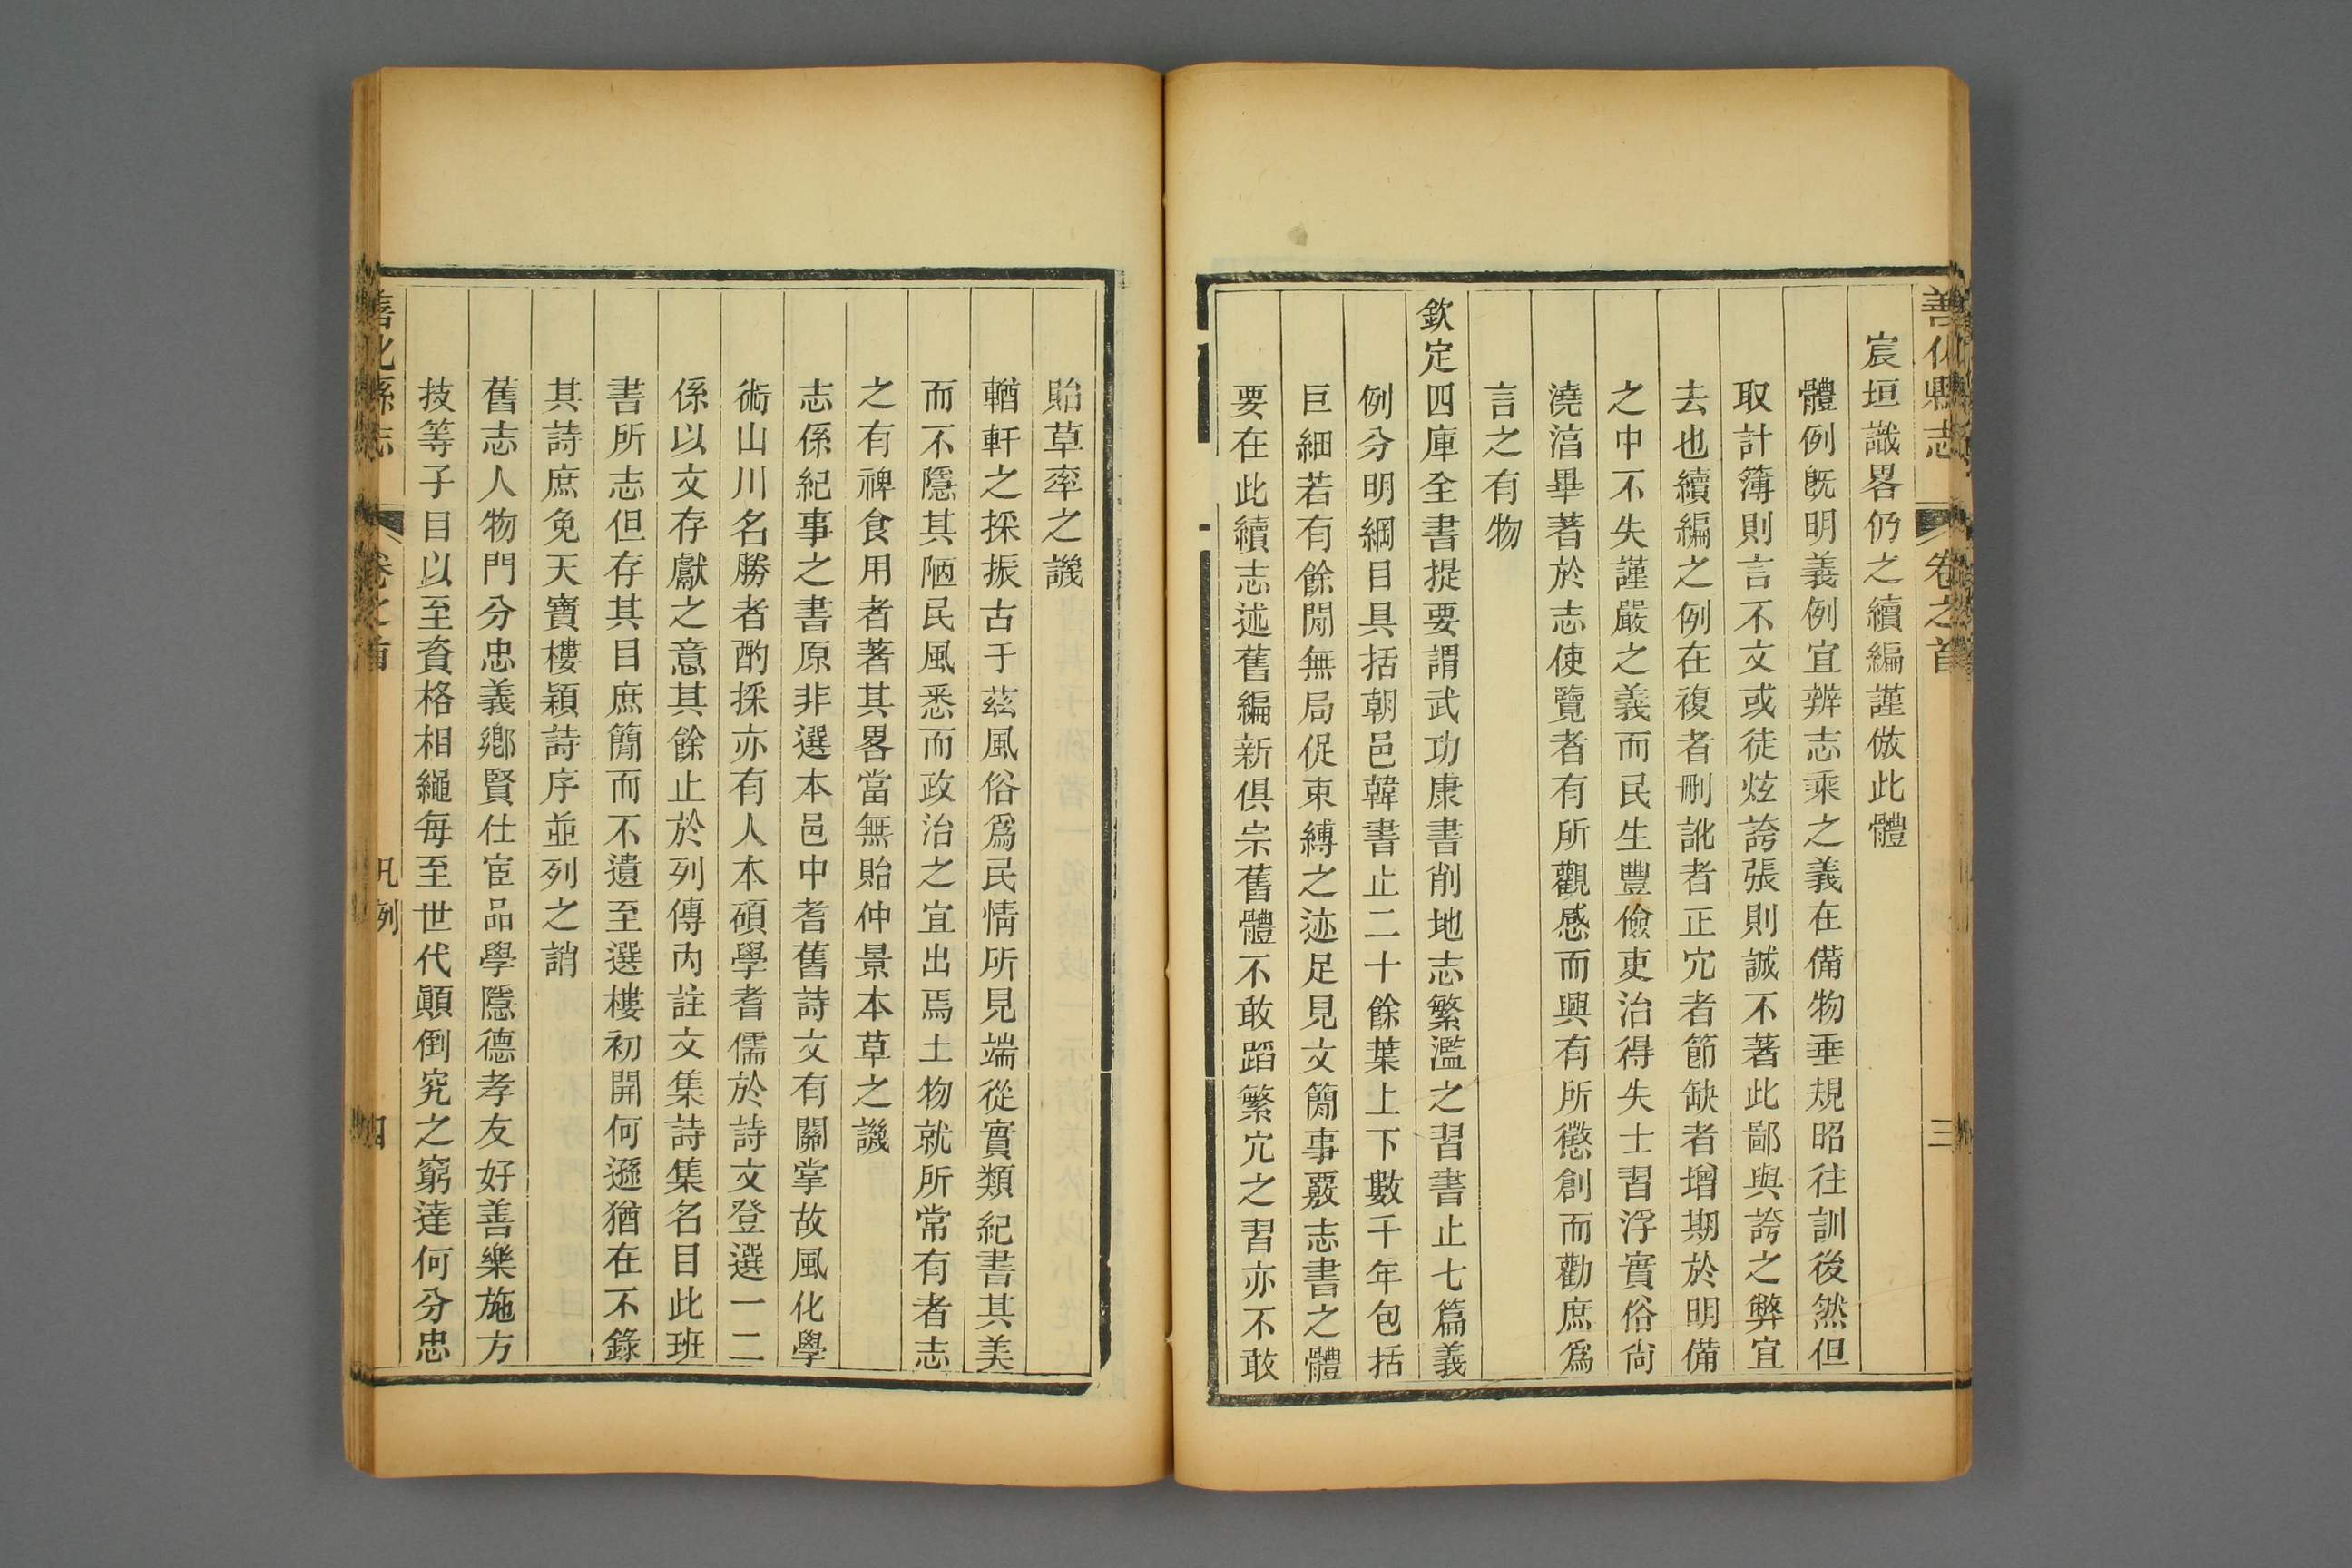 善化縣志 卷之首 三
宸垣識畧仍之續編謹倣此體
體例既明義例宜辨志乘之義在備物垂規昭往訓後然但
取計簿則言不文或徒炫誇張則誠不著此鄙與誇之弊宜
去也續編之例在複者刪訛者正冗者節缺者增期於明備
之中不失謹嚴之義而民生豐儉吏治得失士習浮實俗尙
澆湻畢著於志使覽者有所觀感而興有所懲創而勸庶爲
言之有物
欽定四庫全書提要謂武功康書削地志繁濫之習書止七篇義
例分明綱目具括朝邑韓書止二十餘葉上下數千年包括
巨細若有餘閒無局促束縛之迹足見文簡事覈志書之體
要在此續志述舊編新俱宗舊體不敢蹈繁冗之習亦不敢
貽草率之譏
輶軒之採振古于茲風俗爲民情所見端從實類紀書其美
而不隱其陋民風悉而政治之宜出焉土物就所常有者志
之有裨食用者著其畧當無貽仲景本草之譏
志係紀事之書原非選本邑中耆舊詩文有關掌故風化學
術山川名勝者酌採亦有人本碩學耆儒於詩文登選一二
係以文存獻之意其餘止於列傳內註文集詩集名目此班
書所志但存其目庶簡而不遺至選樓初開何遜猶在不錄
其詩庶免天寶樓穎詩序並列之誚
舊志人物門分忠義鄉賢仕宦品學隱德孝友好善樂施方
技等子目以至資格相繩每至世代顚倒究之窮達何分忠
善化縣志 卷之首 凡例 四